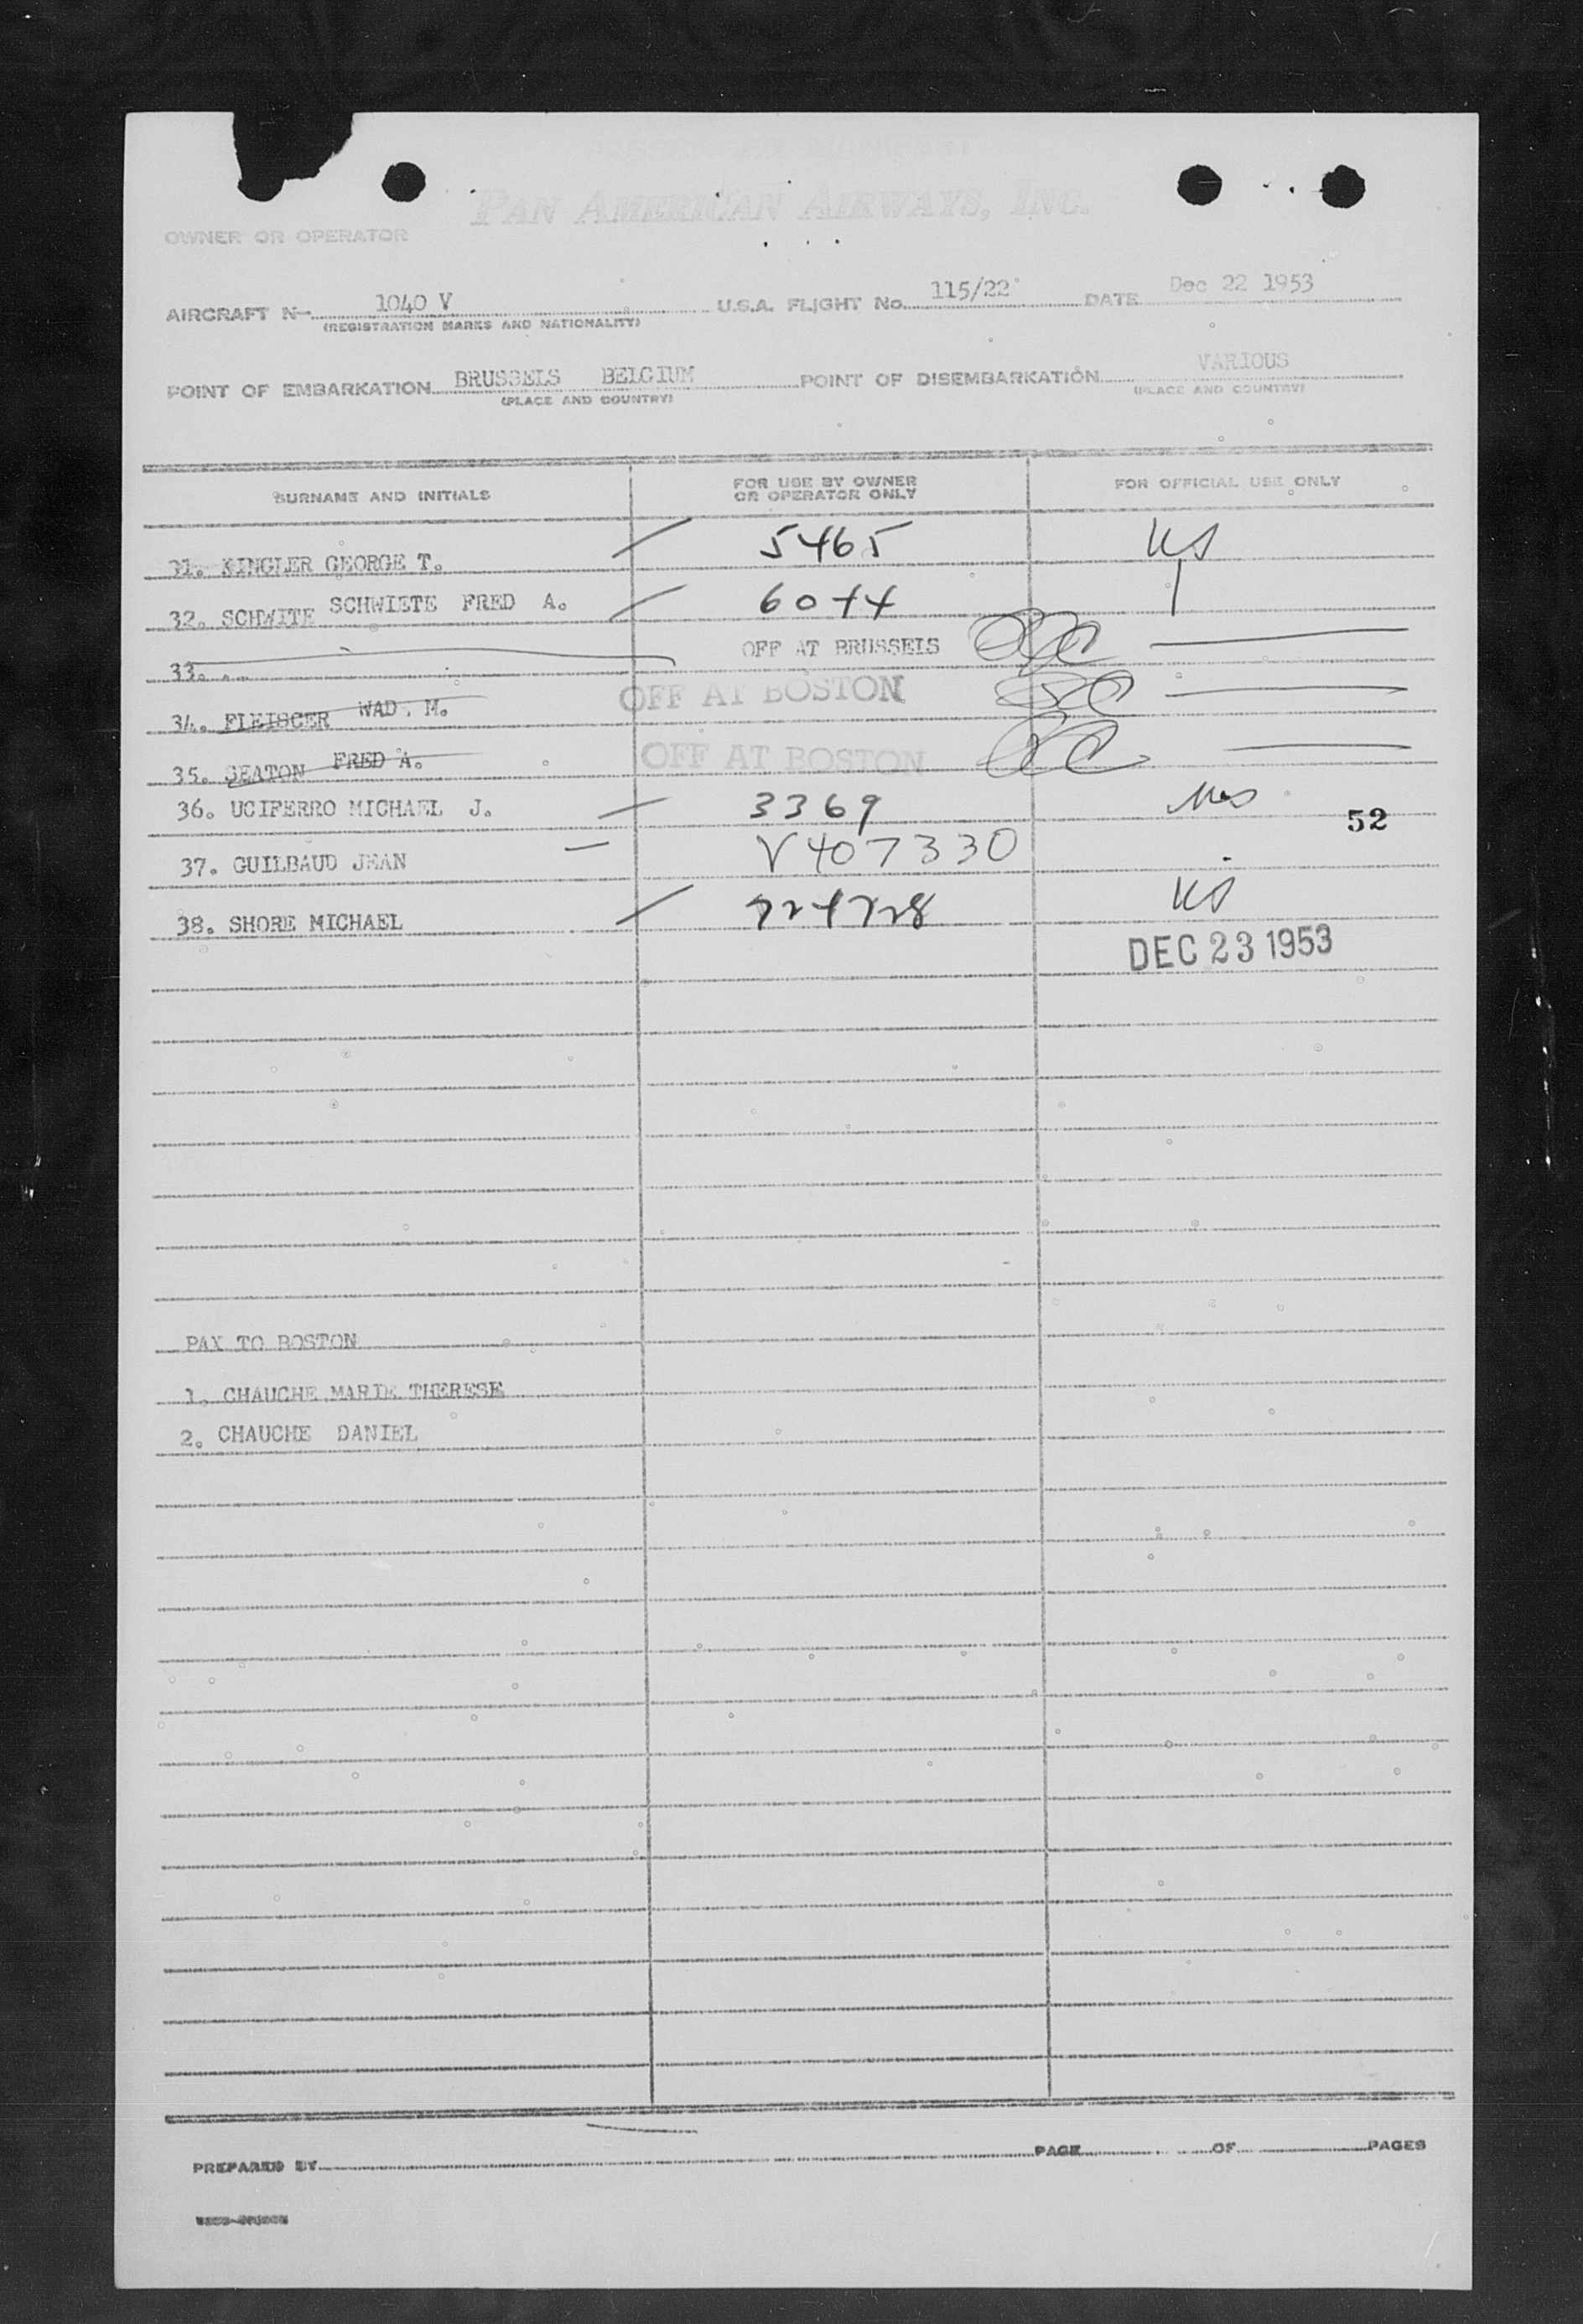 PAN AMERICAN AIRWAYS, INC.
OWNER OR OPERATOR
AIRCRAFT N— 1040 V U.S.A. FLIGHT No. 115/22 DATE Dec 22 1953
(REGISTRATION MARKS AND NATIONALITY)
POINT OF EMBARKATION BRUSSELS BELGIUM POINT OF DISEMBARKATION VARIOUS
(PLACE AND COUNTRY) (PLACE AND COUNTRY)
SURNAME AND INITIALS FOR USE BY OWNER OR OPERATOR ONLY FOR OFFICIAL USE ONLY
31. KINGLER GEORGE T. 5465 US
32. SCHWITE SCHWIETE FRED A. 6044
33. OFF AT BRUSSELS
34. FLEISCER WAD. M. OFF AT BOSTON
35. SEATON FRED A. OFF AT BOSTON
36. UCIFERRO MICHAEL J. 3369
52
37. GUILBAUD JEAN V407330
38. SHORE MICHAEL 724728 US
DEC 23 1953
PAX TO BOSTON
1. CHAUCHE MARIE THERESE
2. CHAUCHE DANIEL
PREPARED BY PAGE OF PAGES